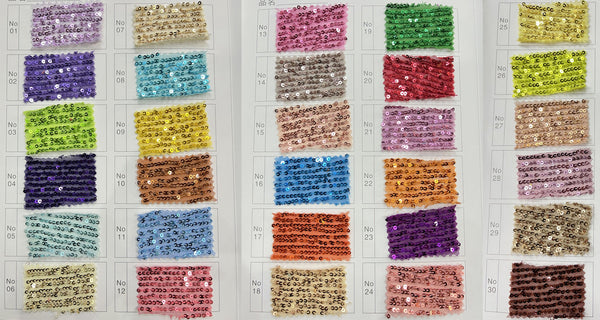 No
01
No
02
No
03
No
04
No
05
No
06
No
07
No
08
No
09
No
10
No
11
No
12
No
13
No
14
No
15
No
16
No
17
No
18
No
19
No
20
No
21
No
22
No
23
No
24
No
25
No
26
No
27
No
28
No
29
No
30